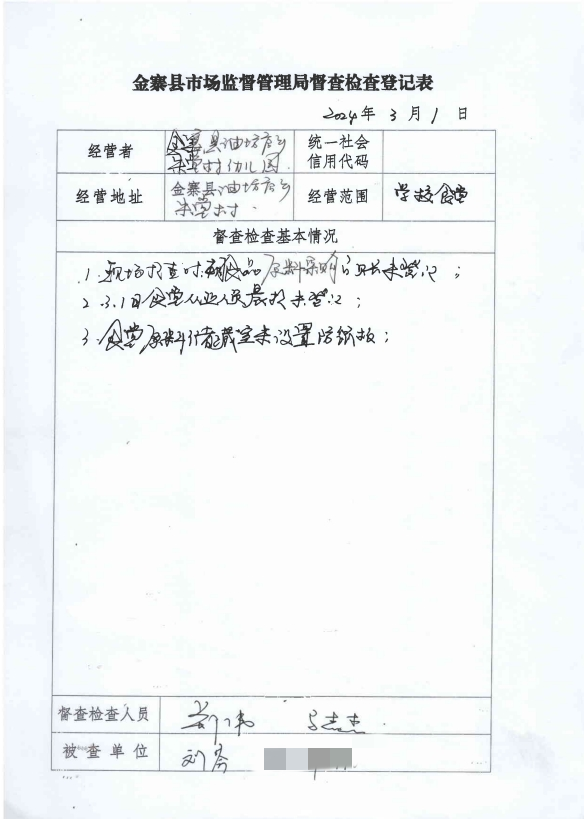 金寨县市场监督管理局督查检查登记表
2024年 3 月 1 日
经营者
金寨县油坊店乡
朱堂村幼儿园.
统一社会
信用代码
经营地址
金寨县油坊店乡
朱堂村.
经营范围
学校食堂
督查检查基本情况
1. 现场检查时 食品原料采购台账未登记;
2. 3.1日食堂从业人员晨检未登记;
3. 食堂原料储藏室未设置防鼠板;
督查检查人员
被查单位
刘